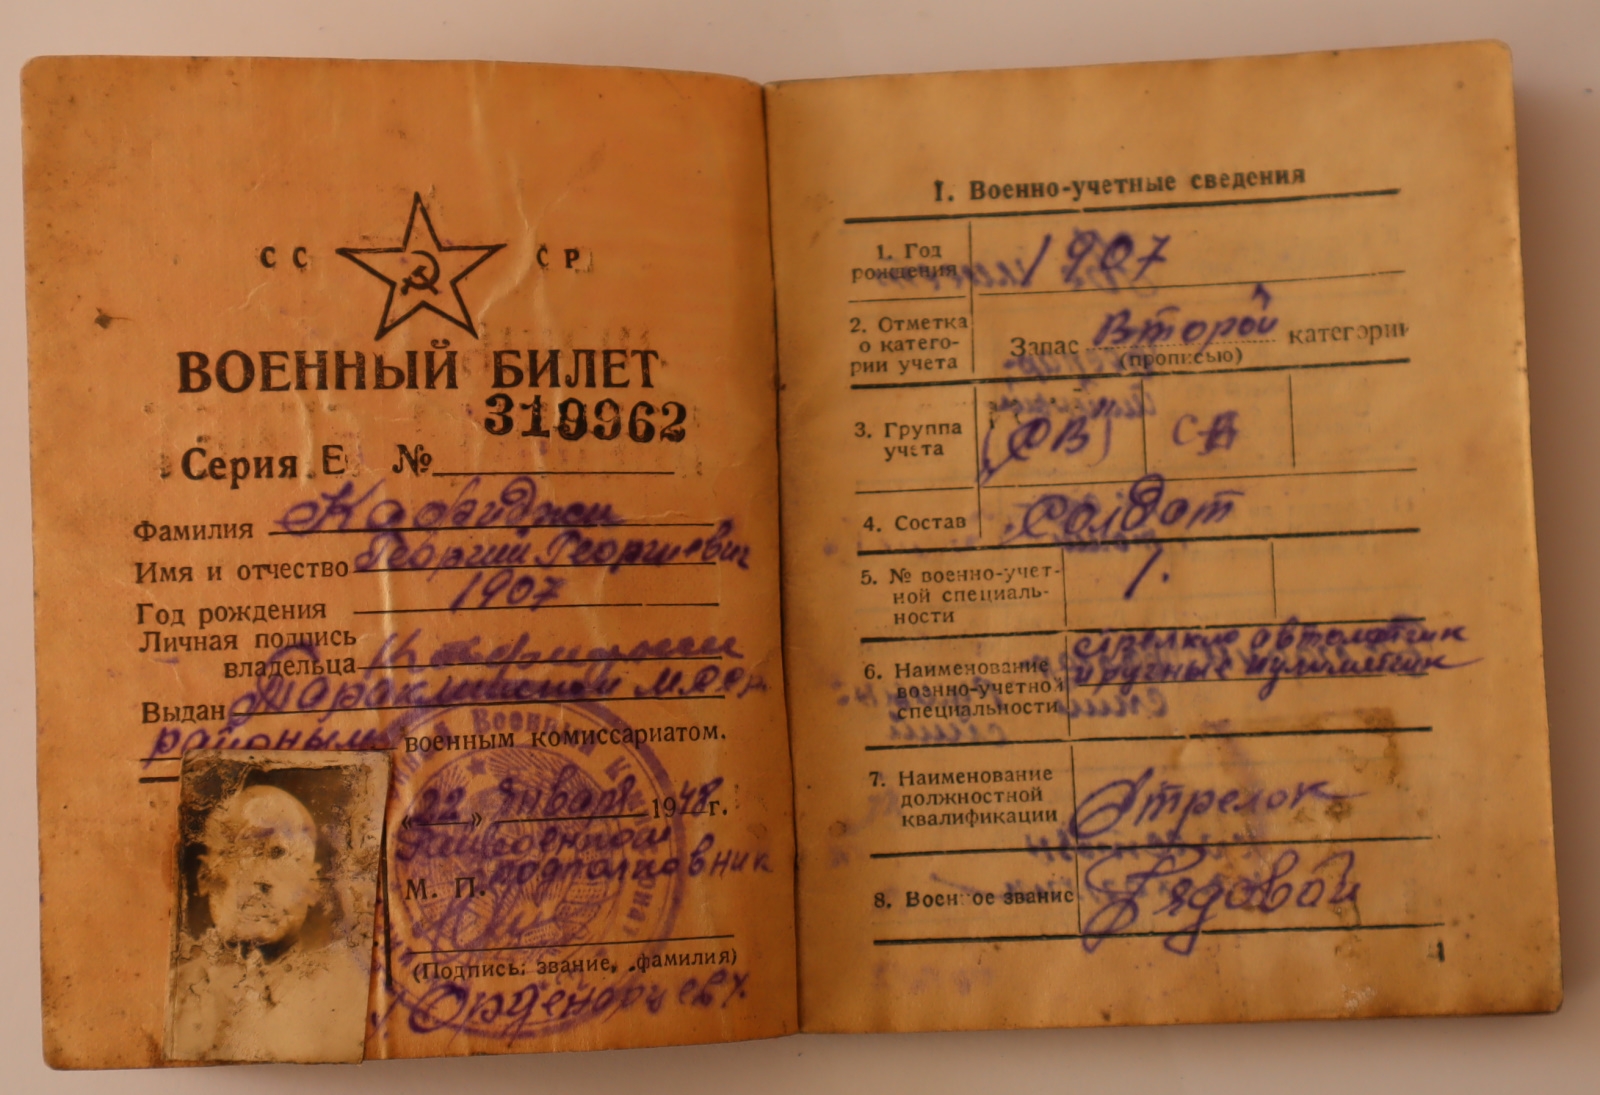 СС СР
ВОЕННЫЙ БИЛЕТ
319962
Серия Е №
Фамилия
Имя и отчество Георгий Георгиевич
Год рождения 1907
Личная подпись
владельца
Выдан Тараклийской МССР
районым военным комиссариатом.
«22» Января 1948 г.
Райвоенком
подполковник
М. П.
(Подпись, звание, фамилия)
I. Военно-учетные сведения
1. Год
рождения 1907
2. Отметка
о катего-
рии учета
Запас Второй категории
(прописью)
3. Группа
учета
4. Состав Солдат
5. № военно-учет-
ной специаль-
ности
1.
6. Наименование
военно-учетной
специальности
стрелки автоматчик
и ручные пулиметчик
7. Наименование
должностной
квалификации
Стрелок
8. Военное звание Рядовой
1